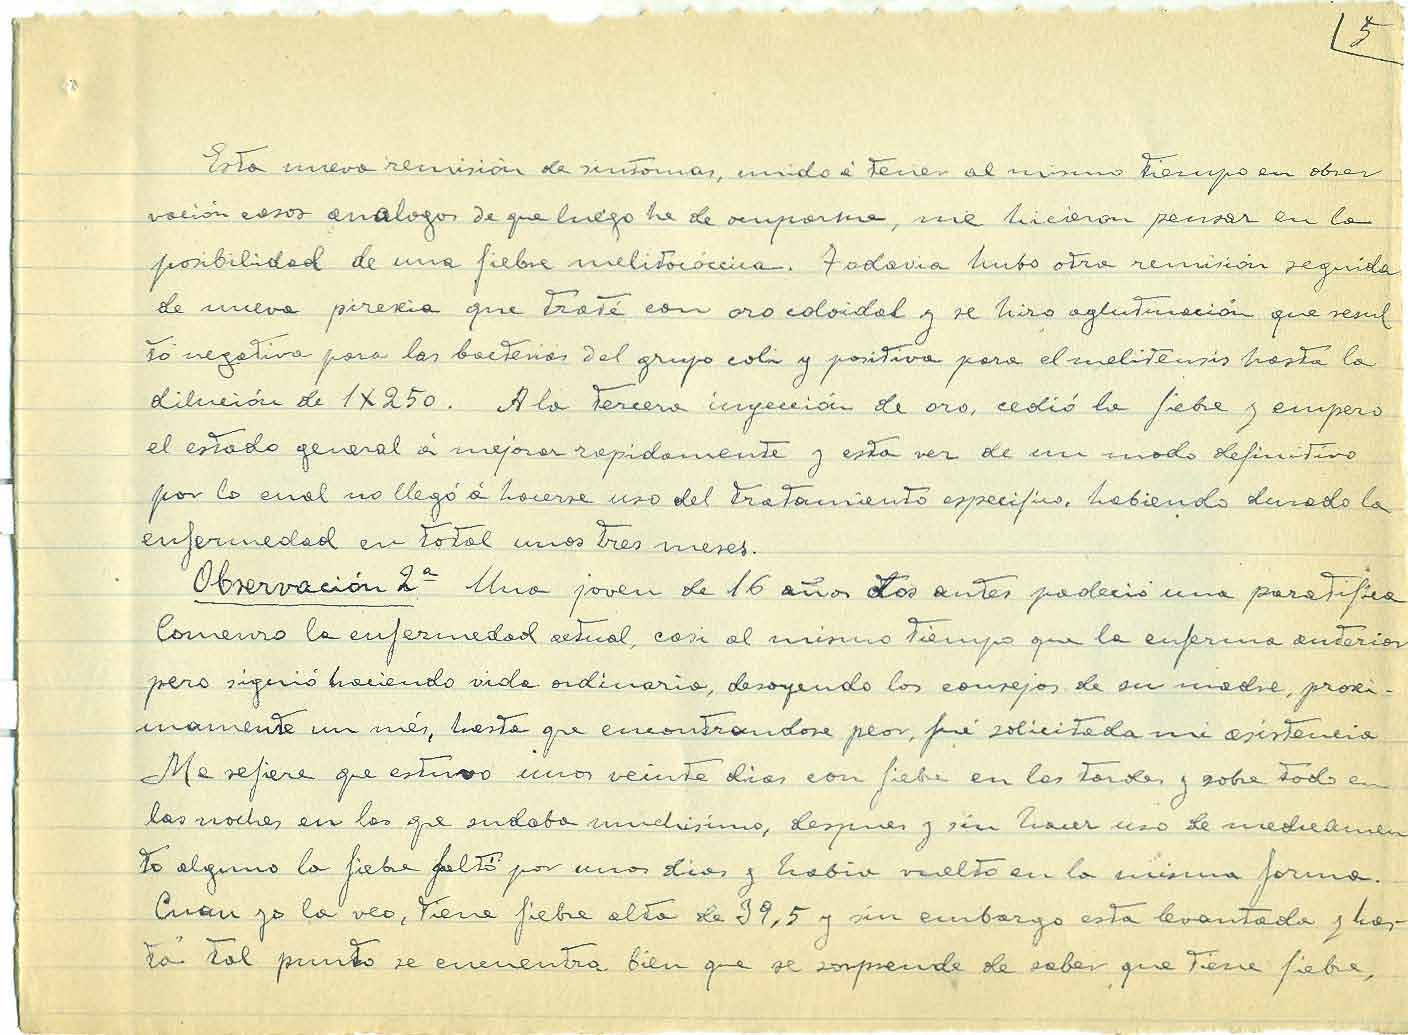 5
Esta nueva remisión de sintomas, unido á tener al mismo tiempo en obser
vación casos analogos de que luégo he de ocuparme, me hicieron pensar en la
posibilidad de una fiebre melitocóccica. Todavia hubo otra remisión seguida
de nueva pirexia que traté con oro coloidal y se hizo aglutinación que resul
tó negativa para las bacterias del grupo coli y positiva para el melitensis hasta la
dilución de 1X250. A la tercera inyección de oro, cedió la fiebre y empezo
el estado general á mejorar rapidamente y esta vez de un modo definitivo
por lo cual no llegó á hacerse uso del tratamiento especifico, habiendo durado la
enfermedad en total unos tres meses.
Observación 2ª Una joven de 16 años dos antes padeció una paratifica
Comenzo la enfermedad actual, casi al mismo tiempo que la enferma anterior
pero siguió haciendo vida ordinaria, desoyendo los consejos de su madre, proxi-
mamente un més, hasta que encontrandose peor, fué solicitada mi asistencia
Me refiere que estuvo unos veinte dias con fiebre en las tardes y sobre todo en
las noches en las que sudaba muchisimo, despues y sin hacer uso de medicamen
to alguno la fiebre faltó por unos dias y habia vuelto en la misma forma.
Cuan yo la veo, tiene fiebre alta de 39,5 y sin embargo esta levantada y has-
ta tal punto se encuentra bien que se sorprende de saber que tiene fiebre,